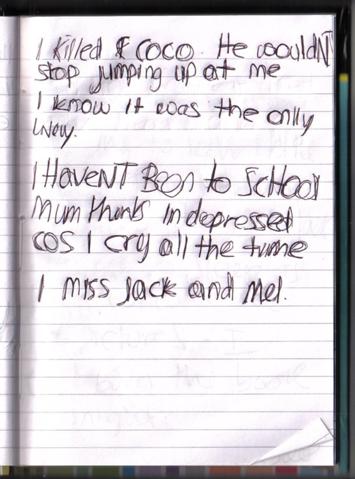 I killed COCO. He wouldNT
stop jumping up at me
I know it was the only
way.
I HaveNT Been to SCHOOl
Mum thinks im depressed
cos I cry all the time
I miss Jack and Mel.